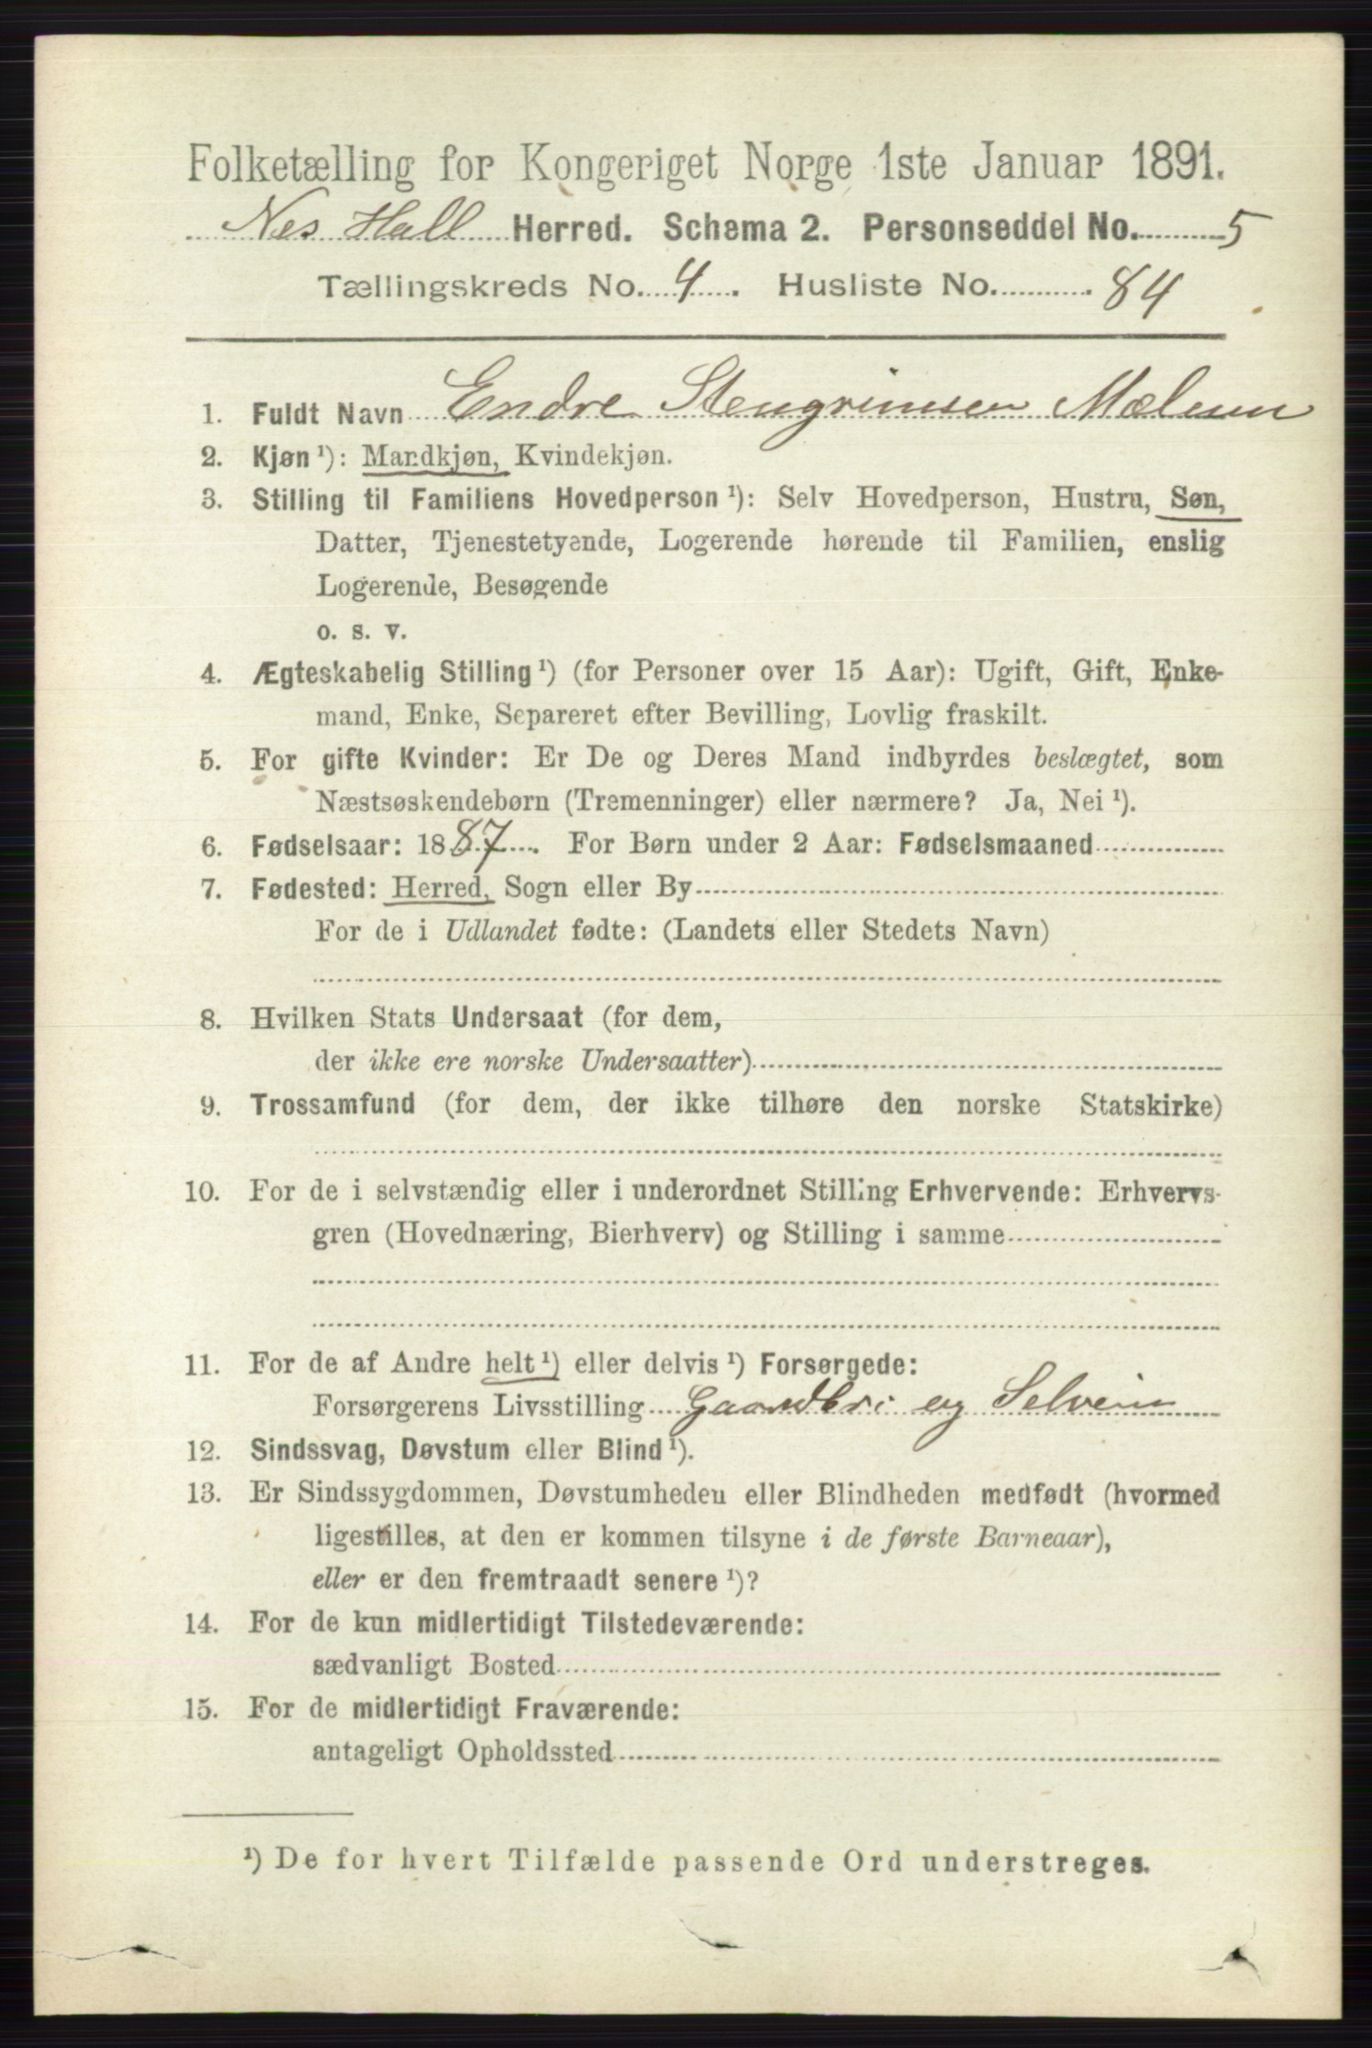 Folketælling for Kongeriget Norge 1ste Januar 1891.
Nes Hall Herred. Schema 2. Personseddel No. 5
Tællingskreds No. 4. Husliste No. 84
1. Fuldt Navn Endre Stengrimsen Mælum
2. Kjøn ¹): Mandkjøn, Kvindekjøn.
3. Stilling til Familiens Hovedperson ¹): Selv Hovedperson, Hustru, Søn,
Datter, Tjenestetyende, Logerende hørende til Familien, enslig
Logerende, Besøgende
o. s. v.
4. Ægteskabelig Stilling ¹) (for Personer over 15 Aar): Ugift, Gift, Enke-
mand, Enke, Separeret efter Bevilling, Lovlig fraskilt.
5. For gifte Kvinder: Er De og Deres Mand indbyrdes beslægtet, som
Næstsøskendebørn (Tremenninger) eller nærmere? Ja, Nei ¹).
6. Fødselsaar: 1887. For Børn under 2 Aar: Fødselsmaaned
7. Fødested: Herred, Sogn eller By
For de i Udlandet fødte: (Landets eller Stedets Navn)
8. Hvilken Stats Undersaat (for dem,
der ikke ere norske Undersaatter)
9. Trossamfund (for dem, der ikke tilhøre den norske Statskirke)
10. For de i selvstændig eller i underordnet Stilling Erhvervende: Erhvervs-
gren (Hovednæring, Bierhverv) og Stilling i samme
11. For de af Andre helt ¹) eller delvis ¹) Forsørgede:
Forsørgerens Livsstilling Gaardbr: og Selveier
12. Sindssvag, Døvstum eller Blind ¹).
13. Er Sindssygdommen, Døvstumheden eller Blindheden medfødt (hvormed
ligestilles, at den er kommen tilsyne i de første Barneaar),
eller er den fremtraadt senere ¹)?
14. For de kun midlertidigt Tilstedeværende:
sædvanligt Bosted
15. For de midlertidigt Fraværende:
antageligt Opholdssted
¹) De for hvert Tilfælde passende Ord understreges.